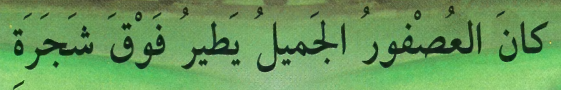 كانَ العُصْفورُ الجَميلُ يَطيرُ فَوْقَ شَجَرَةِ